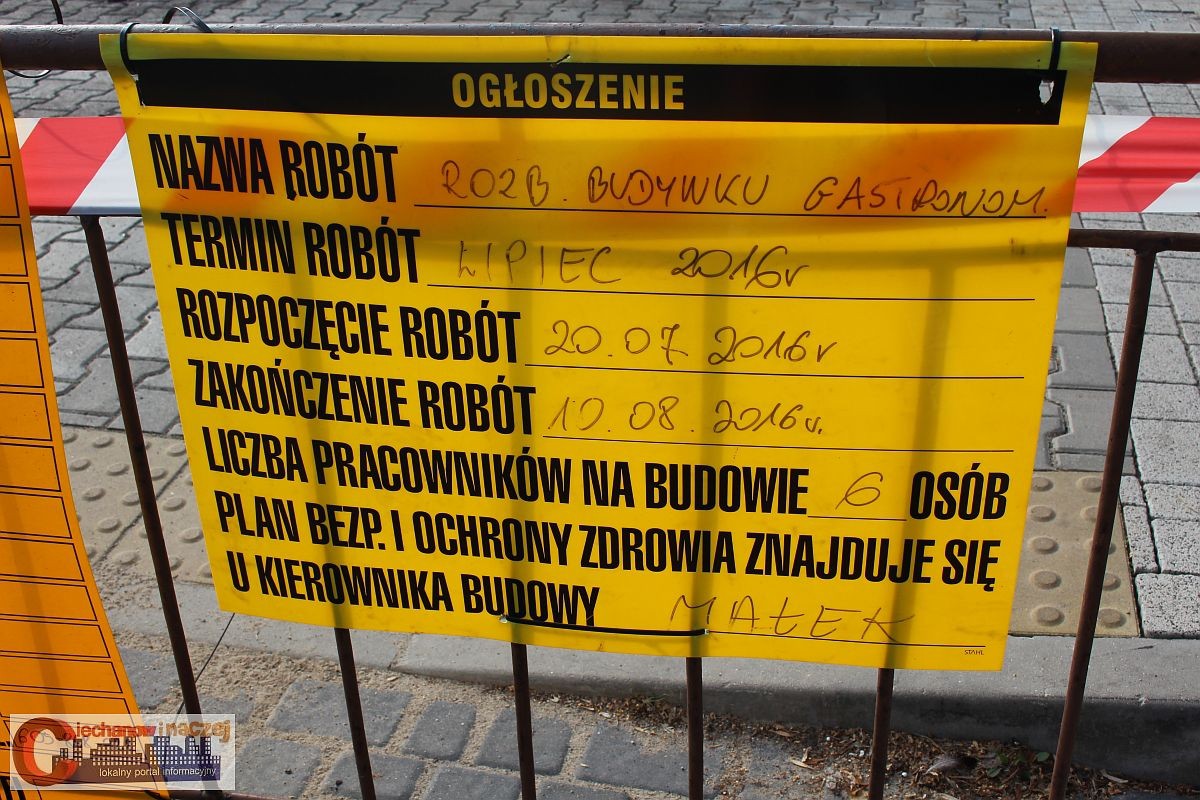 OGŁOSZENIE
NAZWA ROBÓT ROZB. BUDYWKU GASTRONOM.
TERMIN ROBÓT LIPIEC 2016r
ROZPOCZĘCIE ROBÓT 20.07 2016r
ZAKOŃCZENIE ROBÓT 10.08.2016r.
LICZBA PRACOWNIKÓW NA BUDOWIE 6 OSÓB
PLAN BEZP. I OCHRONY ZDROWIA ZNAJDUJE SIĘ
U KIEROWNIKA BUDOWY MAŁEK
STAHL
Ciechanów inaczej
lokalny portal informacyjny